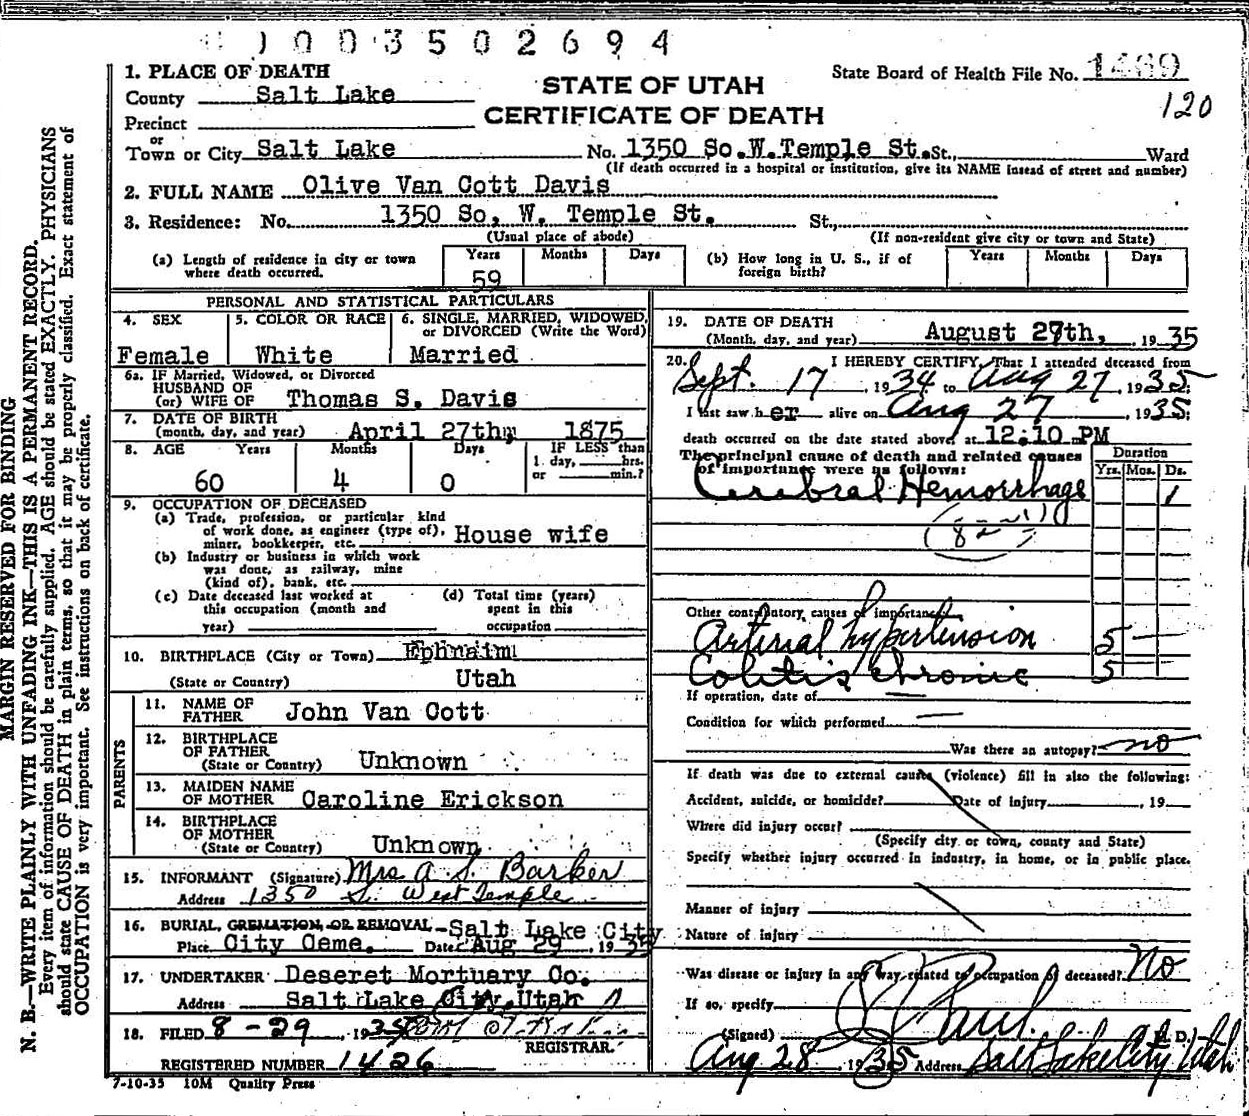 1003502694
1. PLACE OF DEATH
STATE OF UTAH
CERTIFICATE OF DEATH
State Board of Health File No. 1469
120
County Salt Lake
Precinct
or
Town or City Salt Lake No. 1350 So.W.Temple St. St., Ward
(If death occurred in a hospital or institution, give its NAME insead of street and number)
2. FULL NAME Olive Van Cott Davis
3. Residence: No. 1350 So, W. Temple St. St.,
(Usual place of abode) (If non-resident give city or town and State)
(a) Length of residence in city or town where death occurred. Years 59 Months Days
(b) How long in U. S., if of foreign birth? Years Months Days
PERSONAL AND STATISTICAL PARTICULARS
4. SEX Female
5. COLOR OR RACE White
6. SINGLE, MARRIED, WIDOWED, or DIVORCED (Write the Word) Married
6a. IF Married, Widowed, or Divorced
HUSBAND OF
(or) WIFE OF Thomas S. Davis
7. DATE OF BIRTH
(month, day, and year) April 27th, 1875
8. AGE Years 60 Months 4 Days 0
IF LESS than
1 day, hrs.
or min.?
9. OCCUPATION OF DECEASED
(a) Trade, profession, or particular kind
of work done, as engineer (type of),
miner, bookkeeper, etc. House wife
(b) Industry or business in which work
was done, as railway, mine
(kind of), bank, etc.
(c) Date deceased last worked at
this occupation (month and
year)
(d) Total time (years)
spent in this
occupation
10. BIRTHPLACE (City or Town) Ephraim
(State or Country) Utah
PARENTS
11. NAME OF
FATHER John Van Cott
12. BIRTHPLACE
OF FATHER
(State or Country) Unknown
13. MAIDEN NAME
OF MOTHER Caroline Erickson
14. BIRTHPLACE
OF MOTHER
(State or Country) Unknown
15. INFORMANT (Signature) Mrs A. S. Barker
Address 1350 So. West Temple
16. BURIAL, CREMATION, OR REMOVAL - Salt Lake City
Place City Ceme. Date Aug 29, 1935
17. UNDERTAKER Deseret Mortuary Co.
Address Salt Lake City, Utah
18. FILED 8-29, 1935
REGISTRAR.
REGISTERED NUMBER 1426
7-10-35 10M Quality Press
19. DATE OF DEATH
(Month, day, and year) August 27th, 1935
20. I HEREBY CERTIFY, That I attended deceased from
Sept. 17, 1934 to Aug 27, 1935
I last saw her alive on Aug 27, 1935;
death occurred on the date stated above, at 12:10 PM
The principal cause of death and related causes
of importance were as follows:
Duration
Yrs. Mos. Ds.
Cerebral Hemorrhage 1
Other contributory causes of importance:
Arterial hypertension 5
Colitis chronic 5
If operation, date of —
Condition for which performed —
Was there an autopsy? no
If death was due to external cause (violence) fill in also the following:
Accident, suicide, or homicide? Date of injury , 19
Where did injury occur?
(Specify city or town, county and State)
Specify whether injury occurred in industry, in home, or in public place.
Manner of injury
Nature of injury
Was disease or injury in any way related to occupation of deceased? No
If so, specify
(Signed) M. D.
Aug 28 1935 Address Salt Lake City Utah
MARGIN RESERVED FOR BINDING
N. B.—WRITE PLAINLY WITH UNFADING INK—THIS IS A PERMANENT RECORD.
Every item of information should be carefully supplied. AGE should be stated EXACTLY. PHYSICIANS
should state CAUSE OF DEATH in plain terms, so that it may be properly classified. Exact statement of
OCCUPATION is very important. See instructions on back of certificate.